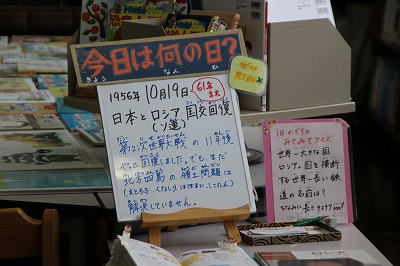 今日は何の日?
きょう なん ひ
ぜひ
見てね
1956年 10月19日
61年まえ
日本とロシア 国交回復
(ソ連)
第二次世界大戦の 11年後
やっと回復しました。でも、まだ
北方四島の領土問題は
(えとろふ、くなしり、はぼまい、しこたん)
解決していません。
1日かぎりの
みてみてクイズ
世界一大きな国
ロシア。国を横断
する世界一長い鉄
道の名前は?
ちなみに長さ9297km!